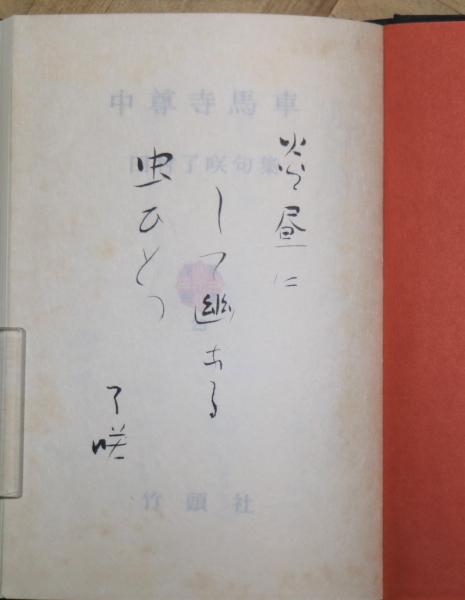 炎昼に
して幽なる
虫ひとつ
了咲
中尊寺馬車
田村了咲句集
竹頭社